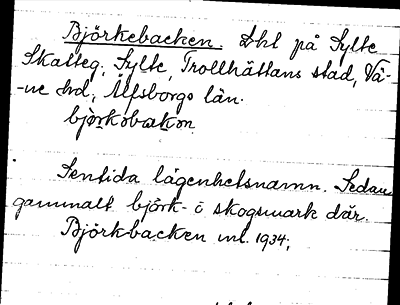 Björkebacken. Lht på Sylte
Skatteg. Sylte, Trollhättans stad, Vä-
-ne hd, Älfsborgs län.
björkəbakən
Sentida lägenhetsnamn. Sedan
gammalt björk- o skogsmark där.
Björkbacken ml. 1934;